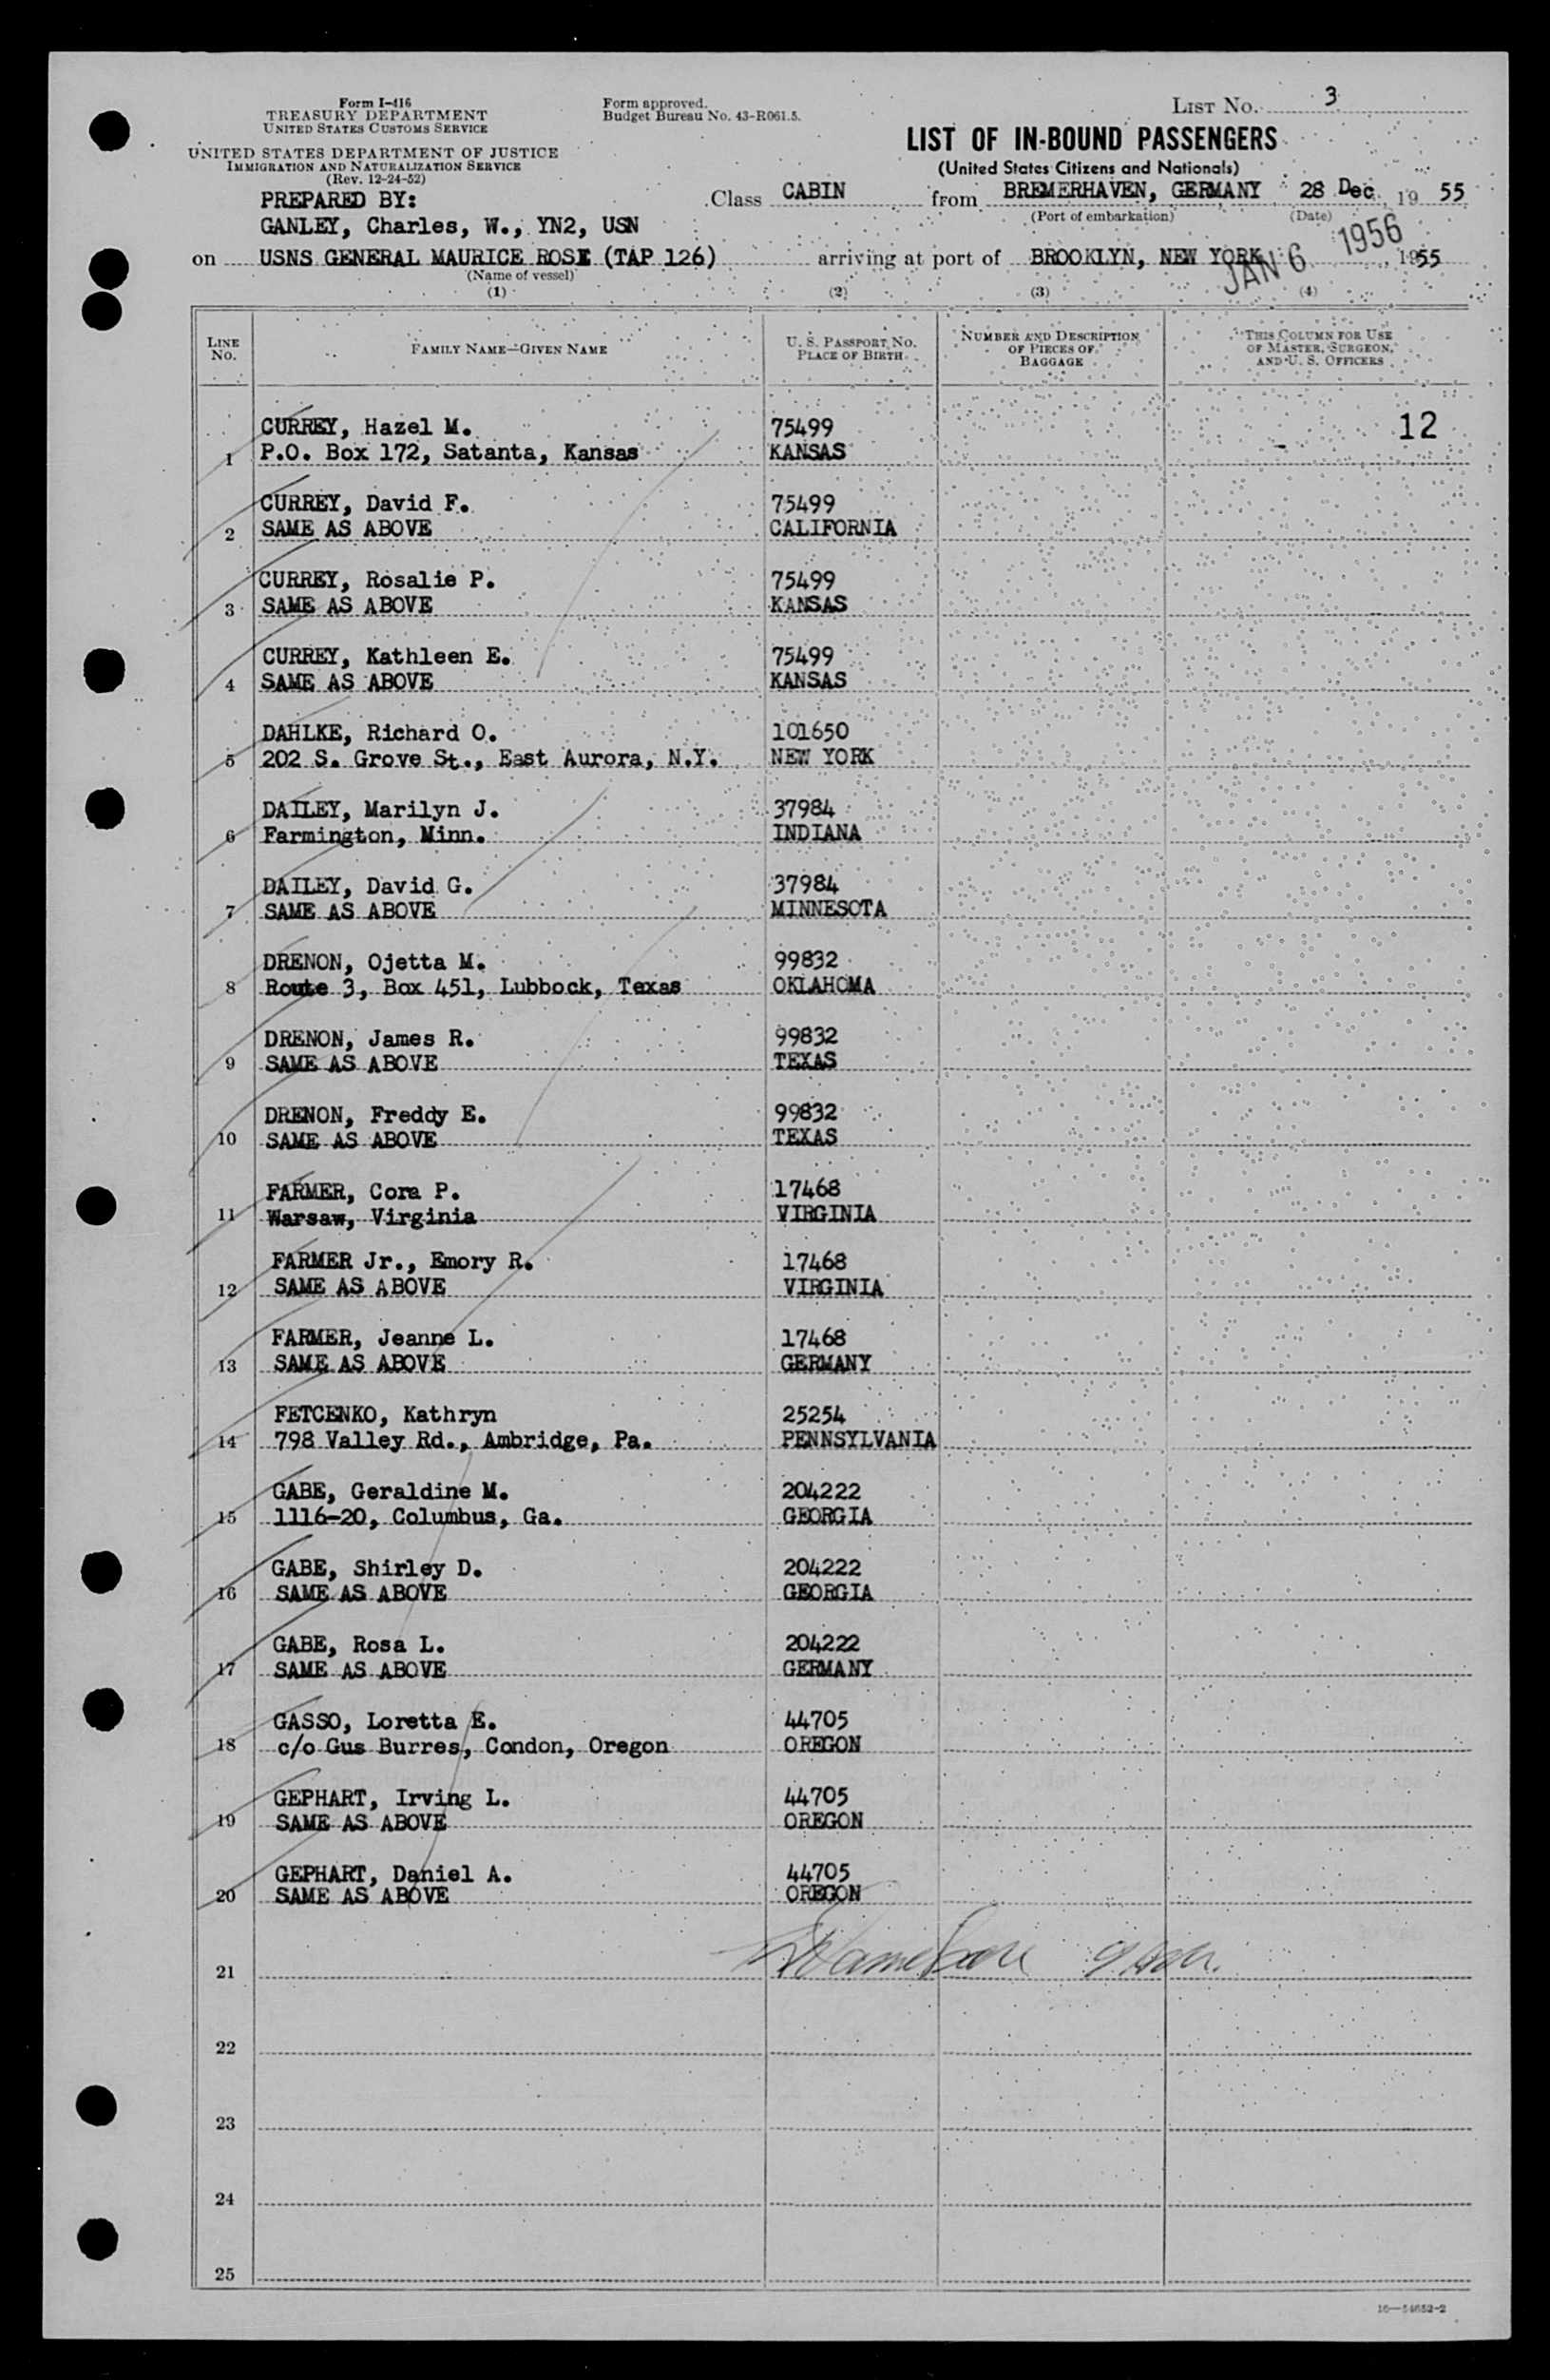 Form I-416
TREASURY DEPARTMENT
UNITED STATES CUSTOMS SERVICE
UNITED STATES DEPARTMENT OF JUSTICE
IMMIGRATION AND NATURALIZATION SERVICE
(Rev. 12-24-52)
Form approved.
Budget Bureau No. 43-R061.5.
LIST NO. 3
LIST OF IN-BOUND PASSENGERS
(United States Citizens and Nationals)
PREPARED BY:
GANLEY, Charles, W., YN2, USN
Class CABIN from BREMERHAVEN, GERMANY 28 Dec, 19 55
(Port of embarkation) (Date)
on USNS GENERAL MAURICE ROSE (TAP 126) arriving at port of BROOKLYN, NEW YORK, 1955
JAN 6 1956
(Name of vessel)
(1) (2) (3) (4)
LINE NO. FAMILY NAME—GIVEN NAME U. S. PASSPORT NO. PLACE OF BIRTH NUMBER AND DESCRIPTION OF PIECES OF BAGGAGE THIS COLUMN FOR USE OF MASTER, SURGEON, AND U. S. OFFICERS
CURREY, Hazel M. 75499 12
1 P.O. Box 172, Satanta, Kansas KANSAS
CURREY, David F. 75499
2 SAME AS ABOVE CALIFORNIA
CURREY, Rosalie P. 75499
3 SAME AS ABOVE KANSAS
CURREY, Kathleen E. 75499
4 SAME AS ABOVE KANSAS
DAHLKE, Richard O. 101650
5 202 S. Grove St., East Aurora, N.Y. NEW YORK
DAILEY, Marilyn J. 37984
6 Farmington, Minn. INDIANA
DAILEY, David G. 37984
7 SAME AS ABOVE MINNESOTA
DRENON, Ojetta M. 99832
8 Route 3, Box 451, Lubbock, Texas OKLAHOMA
DRENON, James R. 99832
9 SAME AS ABOVE TEXAS
DRENON, Freddy E. 99832
10 SAME AS ABOVE TEXAS
FARMER, Cora P. 17468
11 Warsaw, Virginia VIRGINIA
FARMER Jr., Emory R. 17468
12 SAME AS ABOVE VIRGINIA
FARMER, Jeanne L. 17468
13 SAME AS ABOVE GERMANY
FETCENKO, Kathryn 25254
14 798 Valley Rd., Ambridge, Pa. PENNSYLVANIA
GABE, Geraldine M. 204222
15 1116-20, Columbus, Ga. GEORGIA
GABE, Shirley D. 204222
16 SAME AS ABOVE GEORGIA
GABE, Rosa L. 204222
17 SAME AS ABOVE GERMANY
GASSO, Loretta E. 44705
18 c/o Gus Burres, Condon, Oregon OREGON
GEPHART, Irving L. 44705
19 SAME AS ABOVE OREGON
GEPHART, Daniel A. 44705
20 SAME AS ABOVE OREGON
21
22
23
24
25